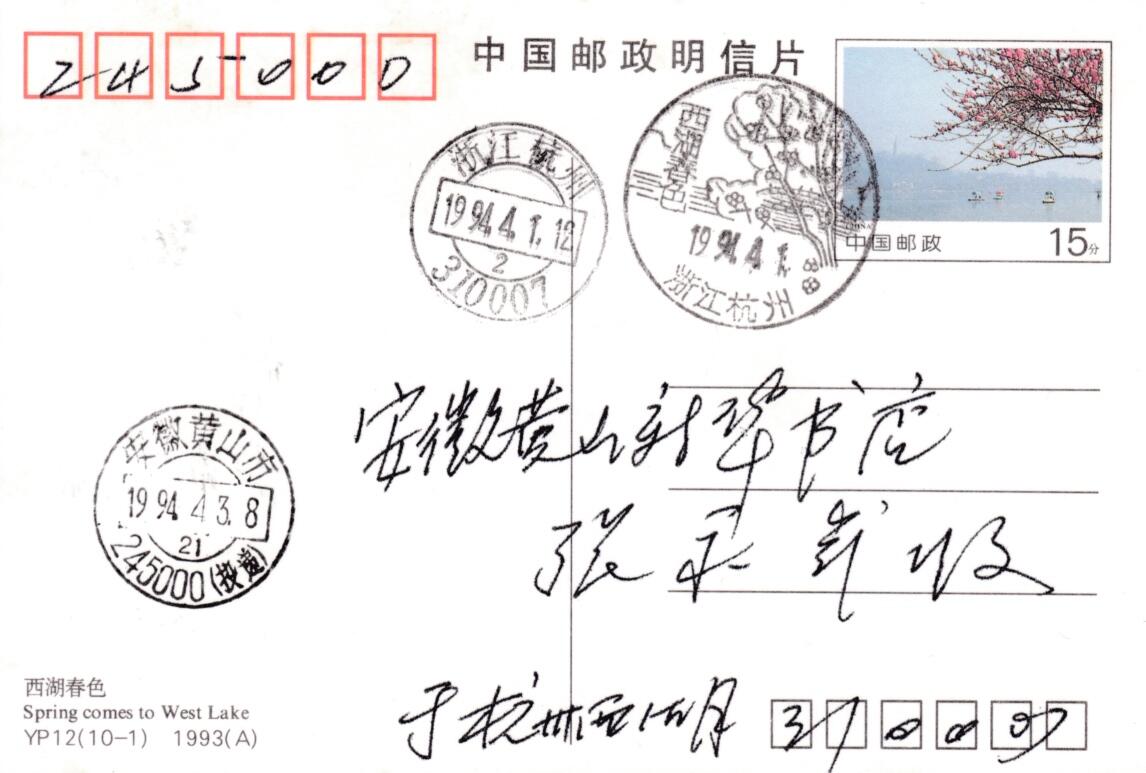 245000
中国邮政明信片
浙江杭州
1994.4.1.12
2
310007
西湖春色
1994.4.1.
浙江杭州
CHINA
中国邮政
15分
安徽黄山新华书店
张
收
安徽黄山市
1994.4.3.8
21
245000(投递)
于杭州西湖
310007
西湖春色
Spring comes to West Lake
YP12(10-1) 1993(A)